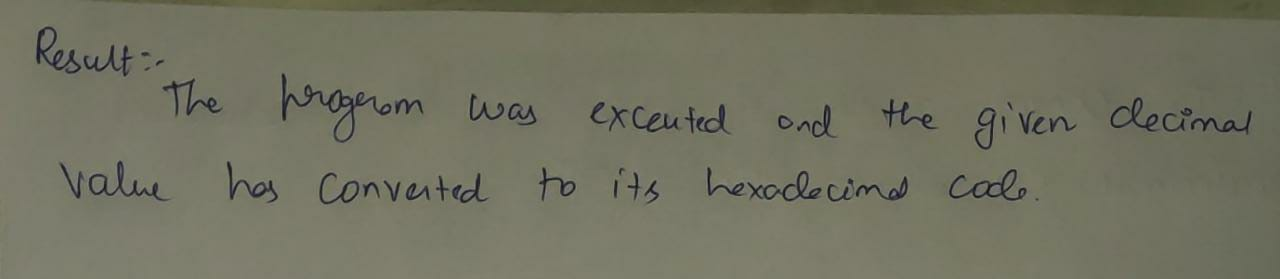 Result:-
The program was executed and the given decimal
value has converted to its hexadecimal code.